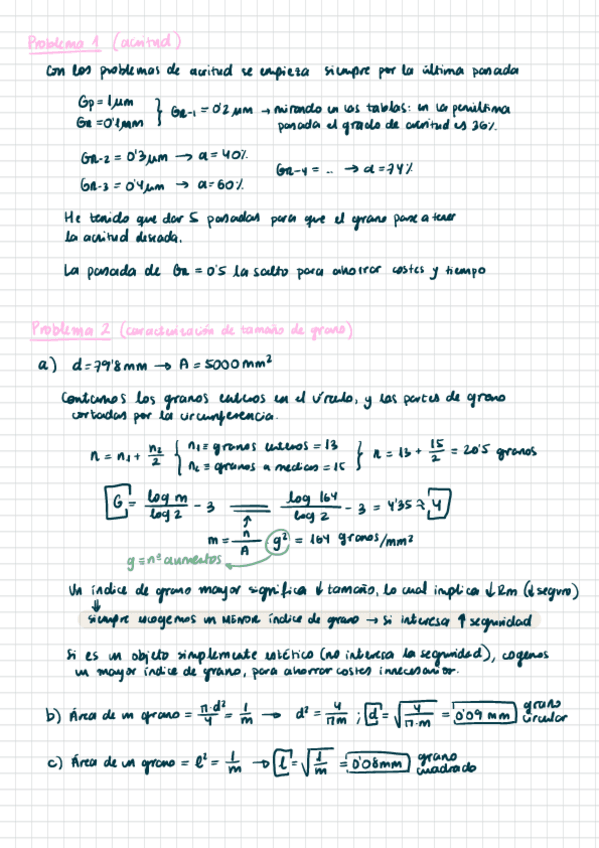 Problema 1 (acritud)
Con los problemas de acritud se empieza siempre por la última pasada
Gp = 1 μm
GR = 0'1 μm
GR-1 = 0'2 μm → mirando en las tablas: en la penúltima
pasada el grado de acritud es 36%.
GR-2 = 0'3 μm → a = 40%.
GR-3 = 0'4 μm → a = 60%.
GR-4 = .. → a = 74%
He tenido que dar 5 pasadas para que el grano pase a tener
la acritud deseada.
La pasada de GR = 0'5 la salto para ahorrar costes y tiempo
Problema 2 (caracterización de tamaño de grano)
a) d = 79'8 mm → A = 5000 mm²
Contamos los granos enteros en el círculo, y las partes de grano
cortadas por la circunferencia.
n = n₁ + n₂/2 { n₁ ≡ granos enteros = 13
n₂ ≡ granos a medias = 15 } n = 13 + 15/2 = 20'5 granos
G = log m / log 2 - 3 = log 164 / log 2 - 3 = 4'35 ≈ 4
m = n/A · g² = 164 granos/mm²
g = nº aumentos
Un índice de grano mayor significa ↓ tamaño, lo cual implica ↓ Rm (↓ seguro)
siempre escogemos un MENOR índice de grano → Si interesa ↑ seguridad
Si es un objeto simplemente estético (no interesa la seguridad), cogemos
un mayor índice de grano, para ahorrar costes innecesarios.
b) Área de un grano = π·d²/4 = 1/m → d² = 4/πm ; d = √(4/π·m) = 0'09 mm grano
circular
c) Área de un grano = l² = 1/m → l = √(1/m) = 0'08 mm grano
cuadrado